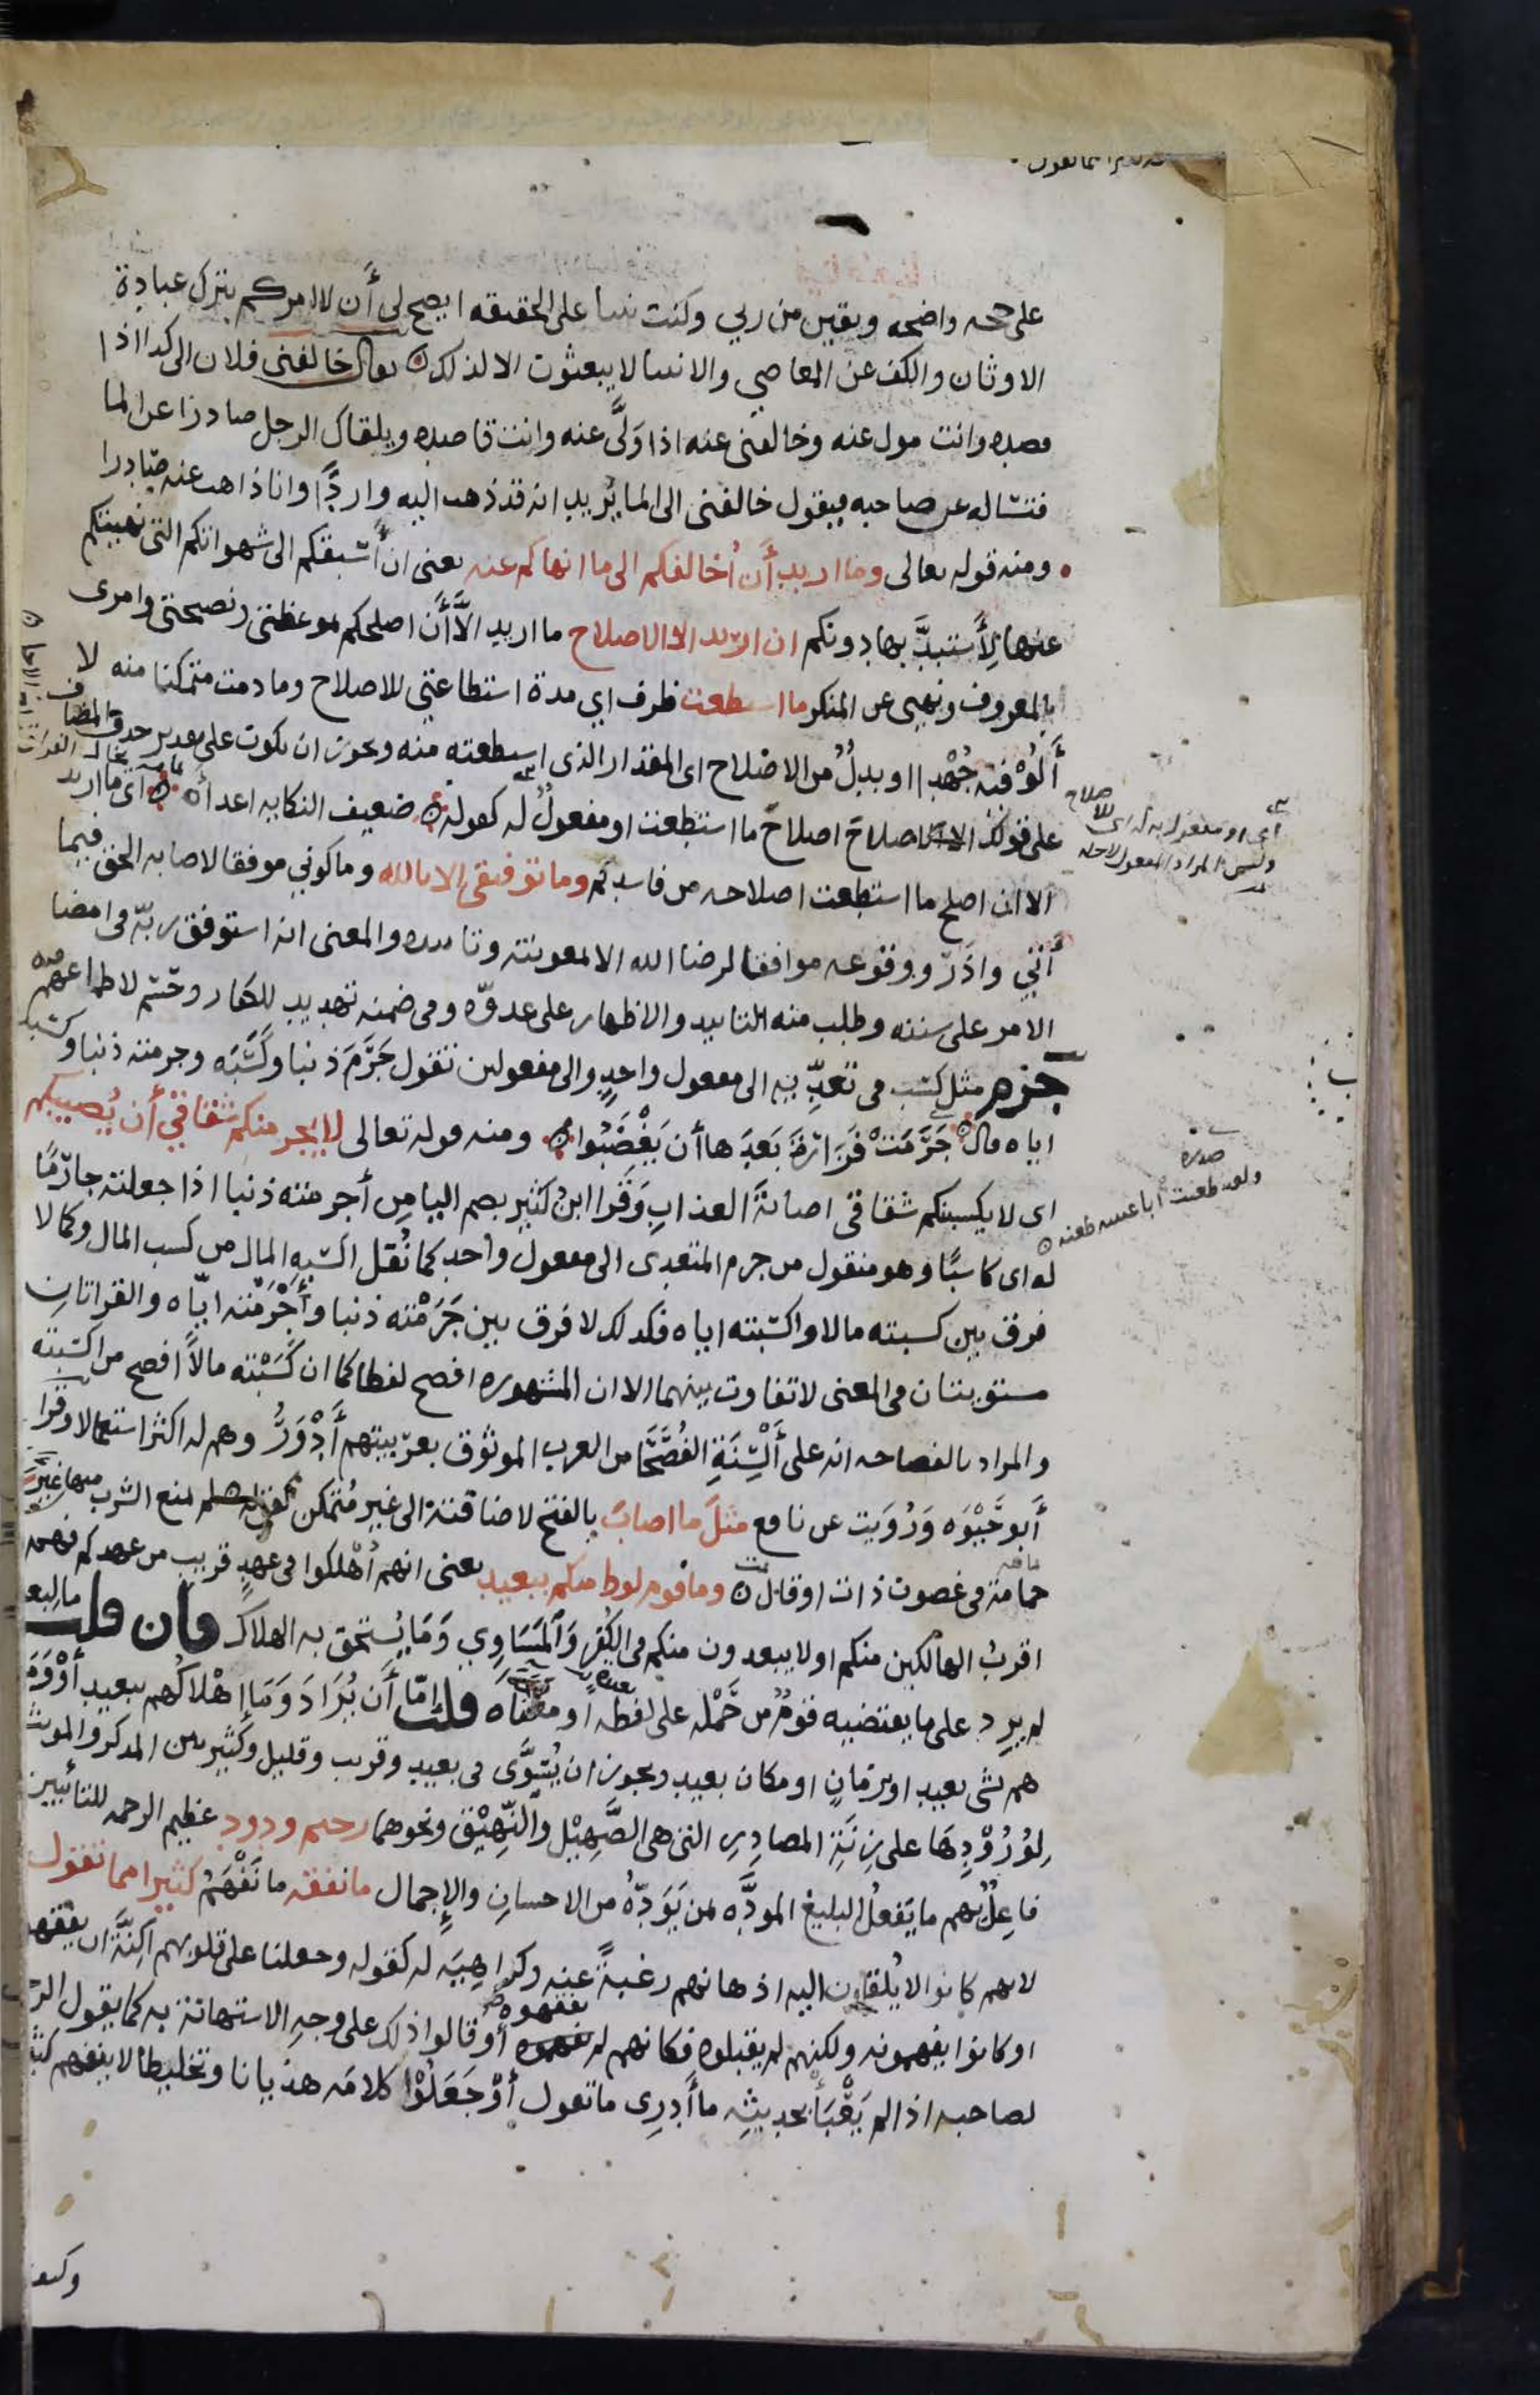 على حجه واضحه ويقين من ربي وكنت نبيا على الحقيقه ايصح لى أن لا امركم بترك عبادة
الاوثان والكف عن المعاصي والانبيا لا يبعثون الا لذلك يقال خالفنى فلان الى كذا اذا
قصده وانت مول عنه وخالفنى عنه اذا ولَّى عنه وانت قاصده ويلقاك الرجل صادرا عن الما
فتساله عن صاحبه فيقول خالفنى الى الما يُريد انه قد ذهب اليه واردًا وانا ذاهب عنه صادرا
ومنه قوله تعالى وما اريد أن أُخالفكم الى ما انهاكم عنه يعنى ان أسبقكم الى شهواتكم التى نهيتكم
عنها لِأستبدَّ بها دونكم ان اريد الا الاصلاح ما اريد الَّا أن اصلحكم بموعظتى ونصيحتى وامرى
بالمعروف ونهيى عن المنكر ما استطعت ظرف اي مدة استطاعتى للاصلاح وما دمت متمكنا منه لا
أَلُوْ فيه جُهْدا او بدلٌ من الاصلاح اى المقدار الذى استطعته منه ويجوز ان يكون على تقدير حذف المضاف
على قولك الا الاصلاح اصلاح ما استطعت او مفعولٌ له كقوله ضعيف النكايه اعداه اى ما اريد
الا ان اصلح ما استطعت اصلاحه من فاسدكم وما توفيقى الا بالله وما كونى موفقا لاصابه الحق فيما
أتي واذر ووقوعه موافقا لرضا الله الا لمعونته وتاييده والمعنى انه استوفق ربّه فى امضا
الامر على سننه وطلب منه التاييد والاظهار على عدوّه وفى ضمنه تهديد للكفار وحسم لاطماعهم منه
جزم مثل كسب فى تعدّيه الى مفعول واحدٍ والى مفعولين تقول جَرَمَ ذنبا وكَسَبَه وجرمته ذنبا وكسبته
اياه قال جَرَمَتْ فَزَارَةَ بَعدَها أن يَغْضَبُوا ومنه قوله تعالى لا يجرمنكم شقاقي أن يُصيبكم
اى لا يكسبنكم شقاقى اصابةَ العذابِ وقَرا ابنُ كثير بضم اليا من أجرمته ذنبا اذا جعلته جارِمًا
له اى كاسبًا وهو منقول من جرم المتعدى الى مفعول واحد كما نُقل اكسبه المال من كسب المال وكما لا
فرق بين كسبته مالا واكسبته اياه فكذلك لا فرق بين جَرَمْته ذنبا وأجْرَمْته ايّاه والقراتان
مستويتان فى المعنى لا تفاوت بينهما الا ان المشهوره افصح لفظا كما ان كَسَبْته مالاً افصح من اكسبته
والمراد بالفصاحه انه على أَلْسِنَةِ الفُصَحَا من العرب الموثوق بعربيتهم أَدْوَرُ وهم له اكثر استعمالا وقرا
أَبو حَيْوَه وَرُوِيَت عن نافع مثلَ ما اصابَ بالفتح لاضافته الى غير مُتمكن كقوله لم يمنع الشرب منها غيرَ
حمامة فى غصون ذات اوقال وما قوم لوط منكم ببعيد يعنى انهم أُهْلكوا فى عهدٍ قريب من عهدكم فهم
اقربُ الهالكين منكم او لا يبعدون منكم فى الكُفرِ وَالمَسَاوِي وَمَا يُستحق به الهلاك فان قلت ما لبعيد
لم يرِد على ما يقتضيه قومٌ من حَمْله على لفظه او معناه قلت امّا أن يُرَادَ وَمَا اهْلاكُهم ببعيد أوْ وَمَا
هم بشى بعيد او بزمانٍ او مكان بعيد ويجوز ان يُسَوَّى فى بعيد وقريب وقليل وكثير بين المذكر والمونث
لِوُرُوْدِهَا على زِنَةِ المصادِرِ التى هى الصَّهِيْل والنَّهِيْق ونحوهما رحيم ودود عظيم الرحمه للتائبين
فاعِلٌ بهم ما يَفعلُ البليغ المودَّه لمن يَوَدّهُ من الاحسانِ والإجمال ما نفقه ما نَفْهَمُ كثيرا مما تقول
لانهم كانوا لا يُلقون اليه اذهانهم رغبةً عنه وكراهِيَه له كقوله وجعلنا على قلوبهم اكِنَّةً ان يفقهوه
او كانوا يفهمونه ولكنهم لم يقبلوه فكانهم لم يفقهوه أو قالوا ذلك على وجهِ الاستهانة به كما يقول الرجل
لصاحبه اذا لم يَعْبَأْ بحديثِه ما أَدرِى ما تقول أوْ جَعَلُوْا كلامَه هذيانا وتخليطا لا ينفهم كثير
اى او مفعول به له اى للاصلاح
وليس المراد المفعول لاجله
صدره
ولقد طعنت ابا عيينه طعنه